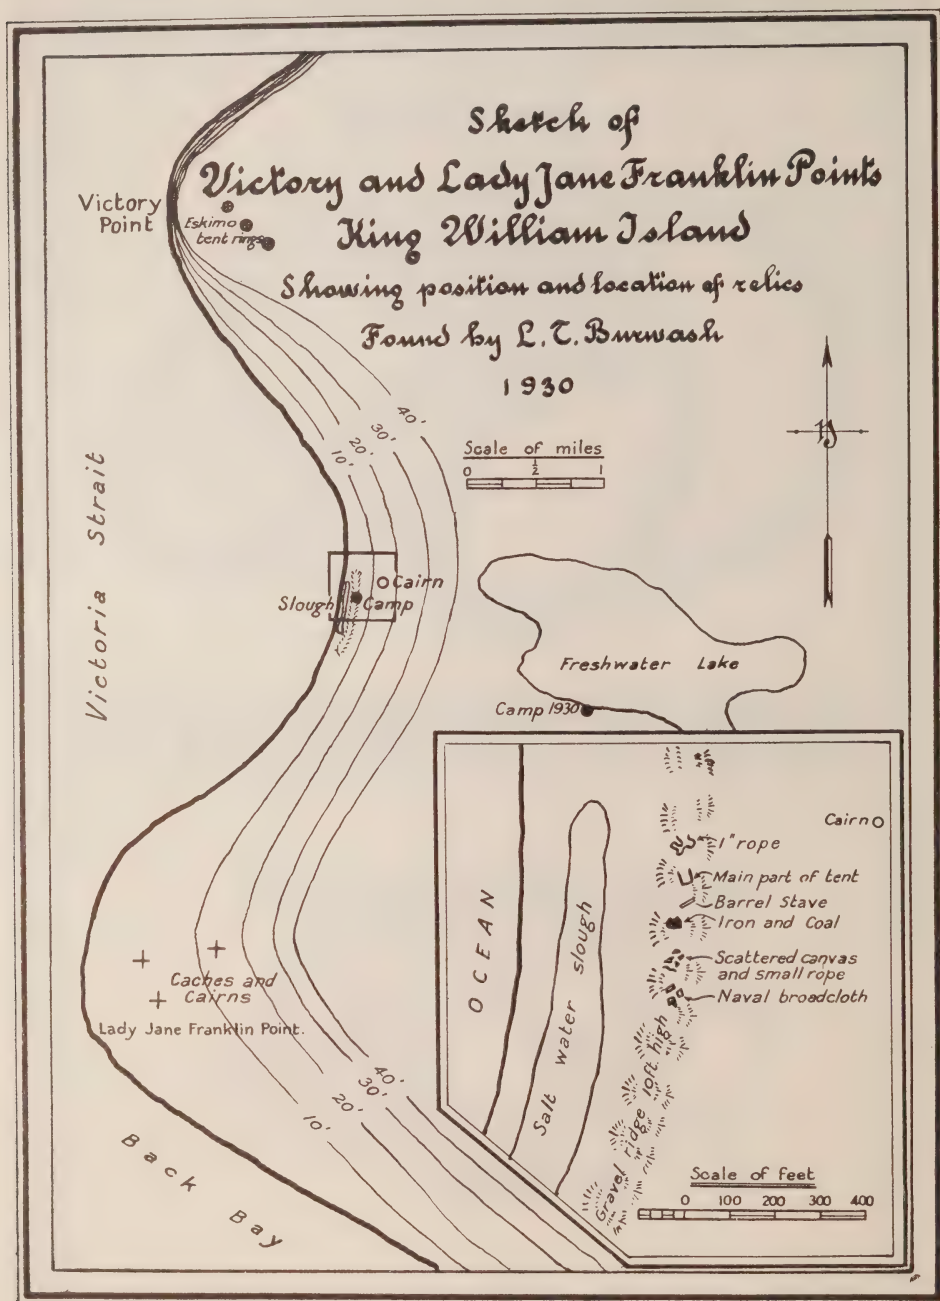 Sketch of
Victory and Lady Jane Franklin Points
King William Island
Showing position and location of relics
Found by L. T. Burwash
1930
Victory
Point
Eskimo
tent rings
40'
30'
20'
10'
Scale of miles
0 ½ 1
N
Victoria Strait
Cairn
Slough
Camp
Freshwater Lake
Camp 1930
Caches and
Cairns
Lady Jane Franklin Point.
40'
30'
20'
10'
Back Bay
OCEAN
Salt water slough
Gravel ridge 10ft high
Cairn
1" rope
Main part of tent
Barrel Stave
Iron and Coal
Scattered canvas
and small rope
Naval broadcloth
Scale of feet
0 100 200 300 400